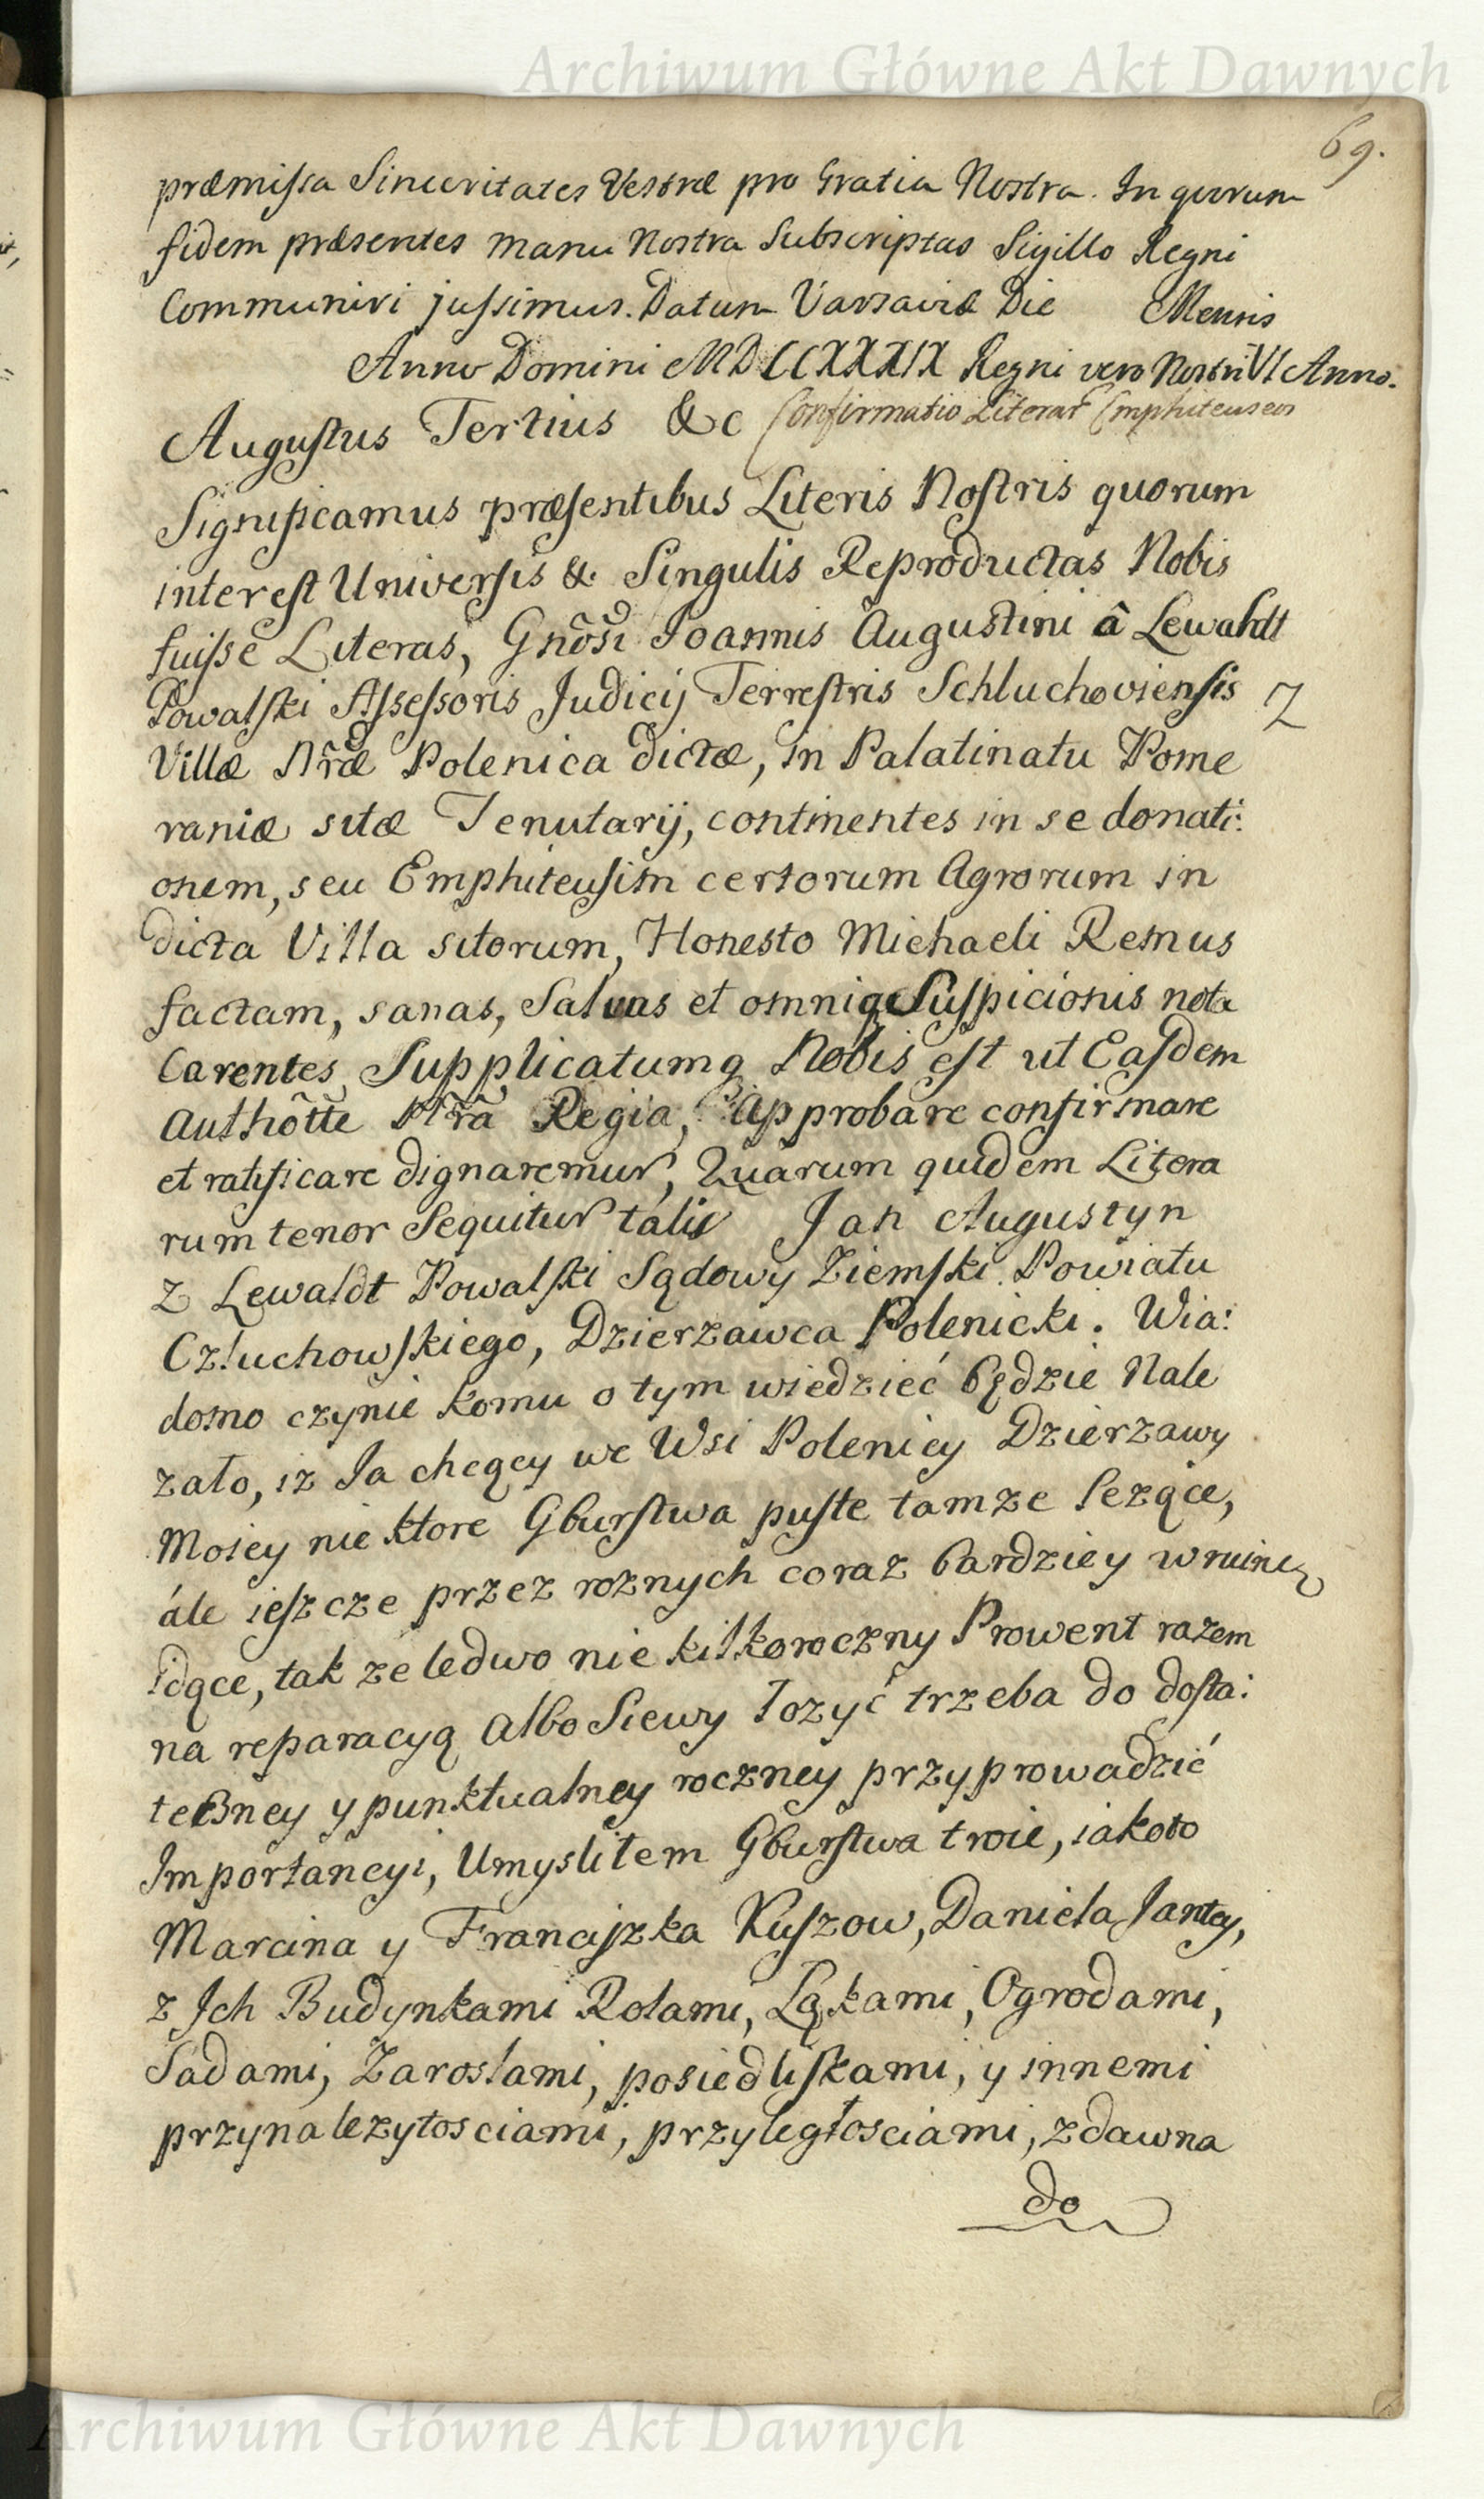 Archiwum Główne Akt Dawnych
69.
præmissa Sinceritates Vestræ pro Gratia Nostra. In quorum
fidem præsentes manu Nostra Subscriptas Sigillo Regni
Communiri jussimus. Datum Varsaviæ Die Mensis
Anno Domini MDCCXXXIX Regni vero Nostri VI Anno.
Augustus Tertius &c Confirmatio Literar Emphiteuseos
Significamus præsentibus Literis Nostris quorum
interest Universis & Singulis Reproductas Nobis
fuisse Literas, Gnõsi Joannis Augustini â Lewaldt
Powalski Assessoris Judicij Terrestris Schluchoviensis Z
Villæ Nr̃æ Polenica dictæ, in Palatinatu Pome
raniæ sitæ Tenutarij, continentes in se donati:
onem, seu Emphiteusim certorum Agrorum in
dicta Villa sitorum, Honesto Michaeli Remus
factam, sanas, Salvas et omniq Suspicionis nota
Carentes, Supplicatumq Nobis est ut Easdem
Authõtte Nr̃a Regia, Approbare confirmare
et ratificare dignaremur, Quarum quidem Litera
rum tenor Sequitur talis Jan Augustyn
z Lewaldt Powalski Sądowy Ziemski Powiatu
Człuchowskiego, Dzierzawca Polenicki. Wia:
domo czynie komu o tym wiedzieć będzie Nale
zało, iz Ja chcący we Wsi Polenicy Dzierzawy
Moiey nie ktore Gburstwa puste tamze lezące,
ále ieszcze przez roznych coraz bardziey w ruinę
idące, tak ze ledwo nie kilkoroczny Prowent razem
na reparacyą albo Siewy łozyć trzeba do dosta:
teczney y punktualney roczney przyprowadzić
Importancyi, Umysliłem Gburstwa troie, iakoto
Marcina y Franciszka Kuszow, Daniela Jantey,
z Ich Budynkami Rolami, Łąkami, Ogrodami,
Sadami, Zaroslami, posiedliskami, y innemi
przynalezytosciami, przyległosciami, zdawna
do
Archiwum Główne Akt Dawnych